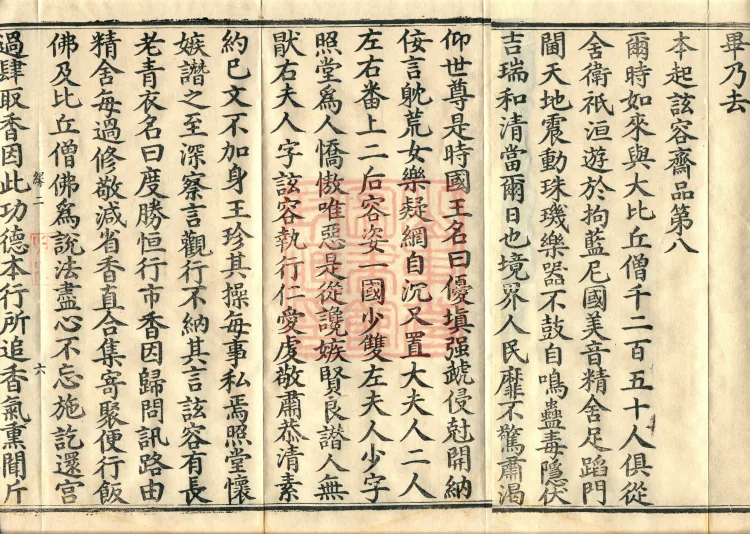 畢乃去
本起該容齋品第八
爾時如來與大比丘僧千二百五十人俱從
舍衛祇洹遊於拘藍尼國美音精舍足蹈門
閫天地震動珠璣樂器不鼓自鳴蠱毒隱伏
吉瑞和清當爾日也境界人民靡不驚肅渴
仰世尊是時國王名曰優填强虣侵尅開納
侫言躭荒女樂疑網自沉又置大夫人二人
左右番上二后容姿一國少雙左夫人少字
照堂爲人憍傲唯惡是從讒嫉賢良譖人無
猒右夫人字該容執行仁愛虔敬肅恭清素
約已文不加身王珍其操每事私焉照堂懷
嫉譖之至深察言觀行不納其言該容有長
老青衣名曰度勝恒行市香因歸問訊路由
精舍每過修敬減省香直合集寄聚便行飯
佛及比丘僧佛爲說法盡心不忘施訖還宮
二 六
過肆取香因此功德本行所追香氣熏聞斤